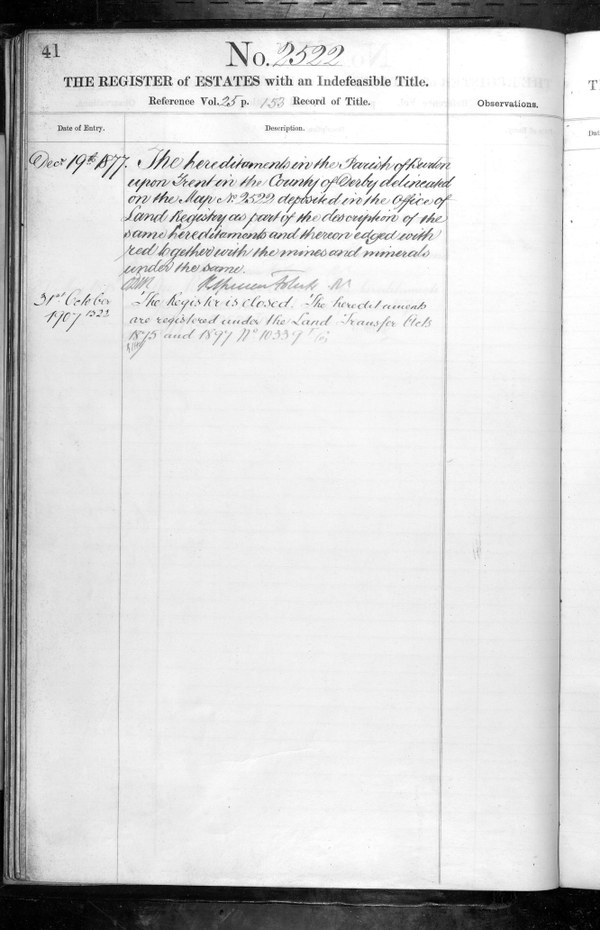 41
No. 2522
THE REGISTER of ESTATES with an Indefeasible Title.
Reference Vol. 25 p. 153 Record of Title.
Observations.
Date of Entry.
Description.
Decr 19th 1877. The hereditaments in the Parish of Burton
upon Trent in the County of Derby delineated
on the Map No 2522 deposited in the Office of
Land Registry as part of the description of the
same hereditaments and thereon edged with
red together with the mines and minerals
under the same.
31st October The Register is closed. The hereditaments
1907 1523 are registered under the Land Transfer Acts
1875 and 1897 No 10339